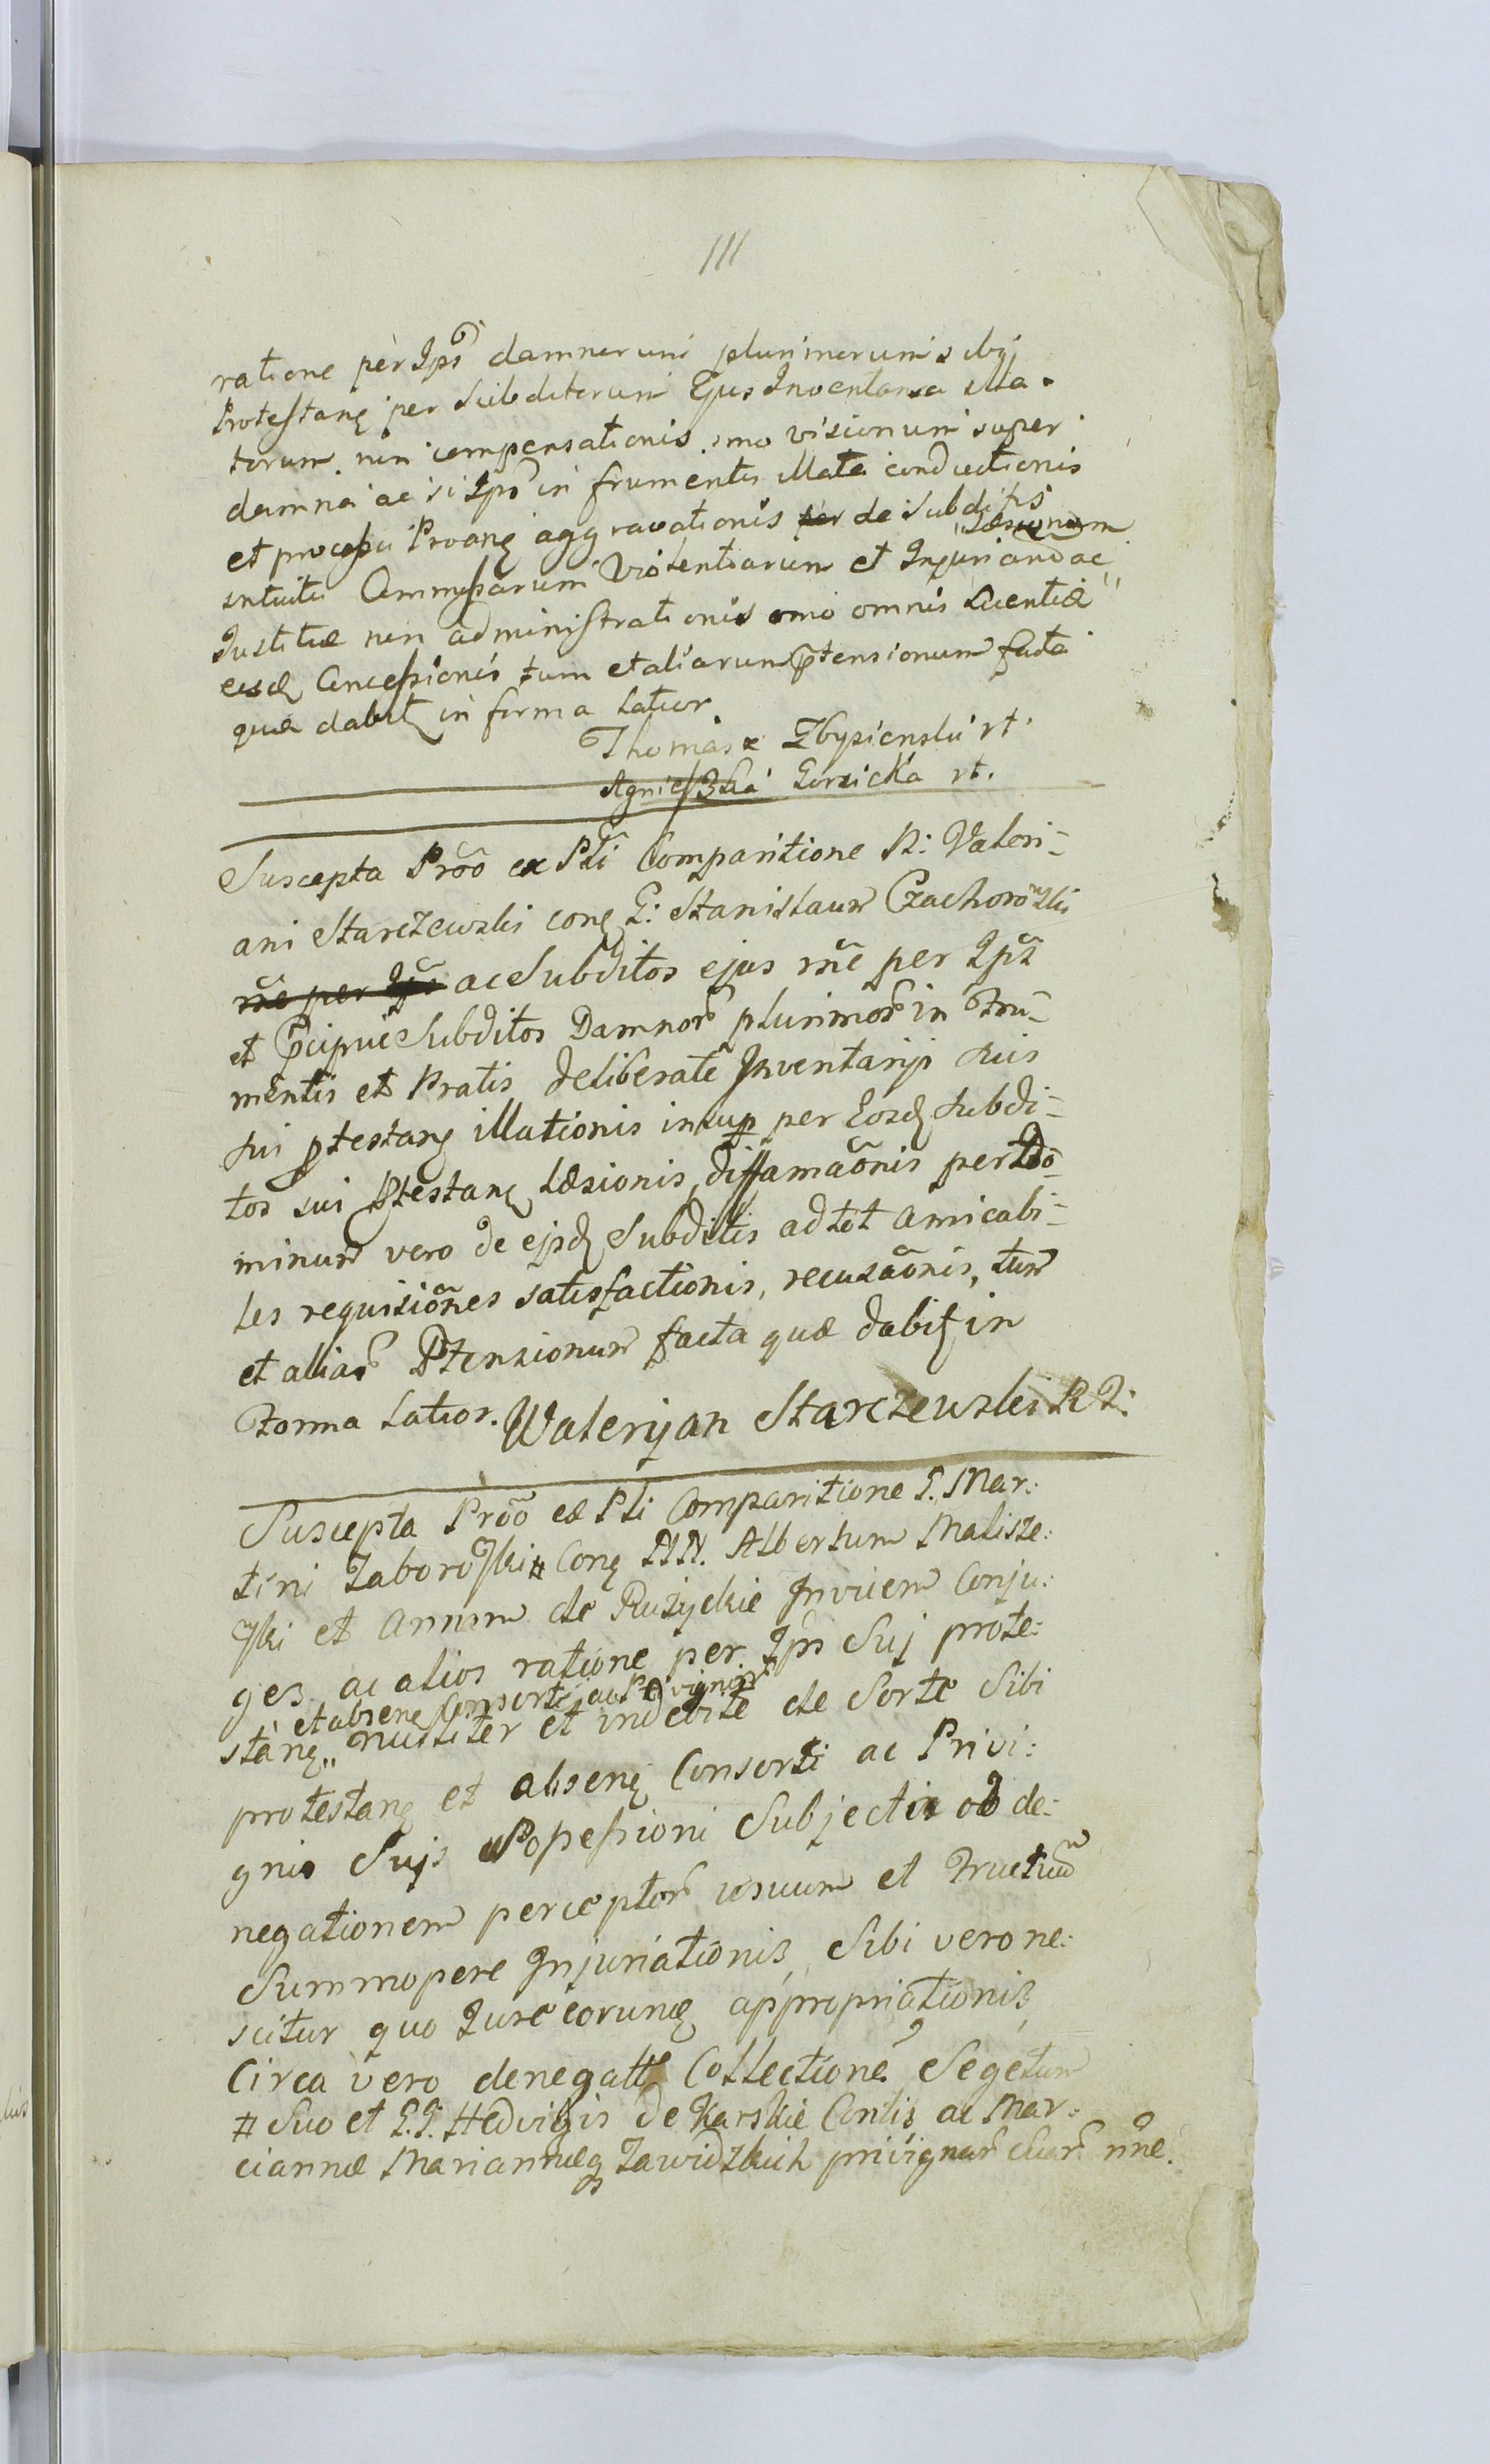 111
ratione per Ipš damnorum plurimorum sibi
Protestanȩ per Subditorum Ejus Inventaria illa-
torum, non compensationis, imo visionum super
damna ac si Ipš in frumentis illata conductionis
et processu Proanȩ aggravationis de Subditis
Læsionum
intuitu Commissarum Violentiarum et Injuriarũ ac
Justitiæ non administrationis imo omnis Licentiæ
eisd Concessionis tum et aliarum ptensionum facta
quæ dabit in forma Latior
Thomas Zbysienski rt.
Agnieszka Gorzicka rt.
Suscepta Prõo ex Pti Comparitione N: Valeri-
ani Starczewski conȩ G: Stanislaum Czachorowski
rñe per Ips ac Subditos ejus rñe per Ips
et p̃cipue Subditos Damnor plurimor in Fru-
mentis et Pratis deliberate Inventarijs suis
sui ptestanȩ illationis insup per Eosd Subdi-
tos sui Ptestanȩ Læsionis, diffamaõnis per Do-
minum vero de ejsd Subditis ad tot amicabi-
les requisiõnes satisfactionis, recusaõnis, tum
et aliar Ptensionum facta quæ dabit in
Forma Latior. Waleryan Starczewski R T:
Suscepta Prõo ex Pti Comparitione G. Mar:
tini Zaborowski # Conȩ NN. Albertum Malisze:
wski et Annam de Ruzyckie Invicem Conju:
ges ac alios ratione per Ips Suj prote:
et absenȩ Consortis ac Privignor
stanȩ nulliter et indebite de Sorte Sibi
protestanȩ et absenȩ Consorti ac Privi:
gnis Sujs Possessioni Subjectis ob de:
negationem perceptor usuum et Fructuum
Summopere Injuriationis, Sibi vero ne:
scitur quo Jure eorunȩ appropriationis,
Circa vero denegatt Collectione Segetum
# Suo et G.G. Hedvigis de Karskie Contis ac Mar:
ciannæ Mariannæq Zawidzkich privignar Suar nñe.